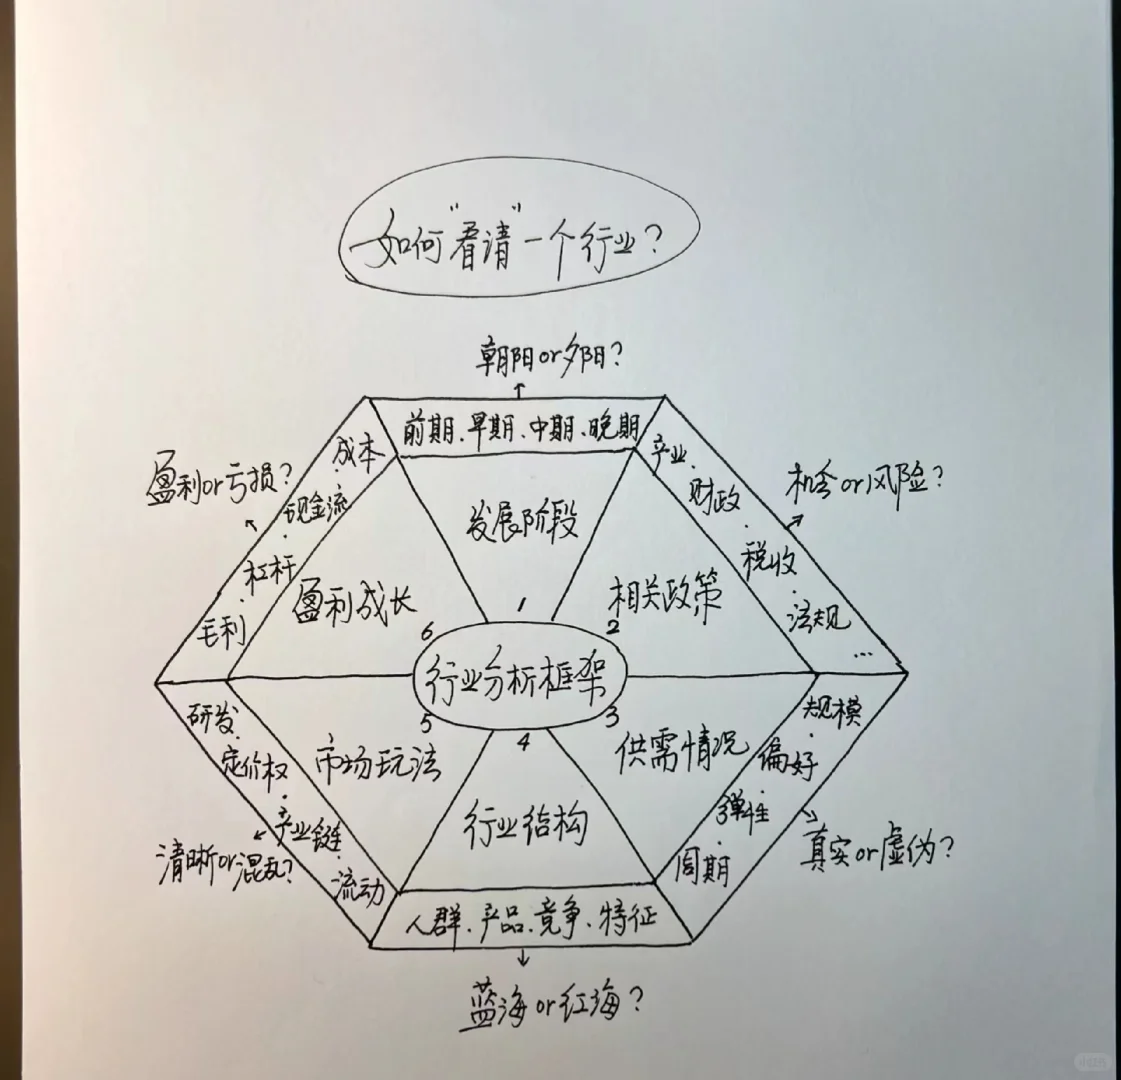 如何"看请"一个行业?
朝阳or夕阳?
前期、早期、中期、晚期
发展阶段
1
机会or风险?
产业、财政、税收、法规…
相关政策
2
真实or虚伪?
规模、偏好、弹性、周期
供需情况
3
蓝海or红海?
人群、产品、竞争、特征
行业结构
4
清晰or混乱?
研发、定价权、产业链、流动
市场玩法
5
盈利or亏损?
成本、现金流、杠杆、毛利
盈利成长
6
行业分析框架
小红书